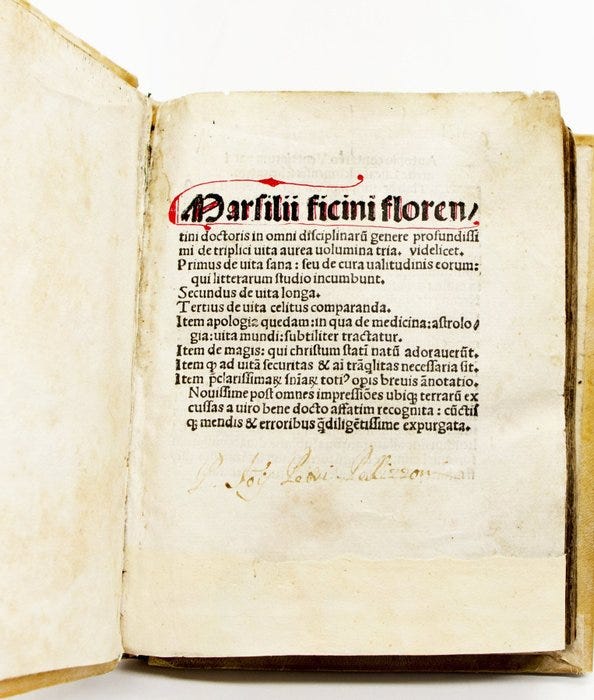 Marsilii ficini floren/
tini doctoris in omni disciplinarū genere profundissi
mi de triplici uita aurea uolumina tria. videlicet.
Primus de uita sana : seu de cura ualitudinis eorum:
qui litterarum studio incumbunt.
Secundus de uita longa.
Tertius de uita celitus comparanda.
Item apologiæ quedam: in qua de medicina: astrolo/
gia: uita mundi: subtiliter tractatur.
Item de magis: qui christum statī natū adorauerūt.
Item ꝙ ad uitā securitas & aī trāq̄litas necessaria sit.
Item p̄clarissimaꝝ sn̄iaꝝ totiꝰ opis breuis ānotatio.
Nouissime post omnes impressiões ubiqꝫ terrarū ex
cussas a uiro bene docto affatim recognita : cūctis
qꝫ mendis & erroribus q̄diligētissime expurgata.